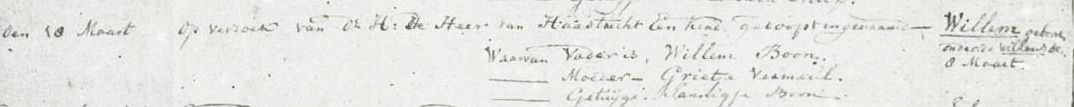 den 18 Maart Op verzoek van de H: De Heer van Haastrecht Een kind gedoopt en genaamd — Willem geboren
onder de Willens de
8 Maart.
Waarvan Vader is, Willem Boon.
—— Moeder — Grietje Vermeul.
—— Getuige. Pannigje Boon.